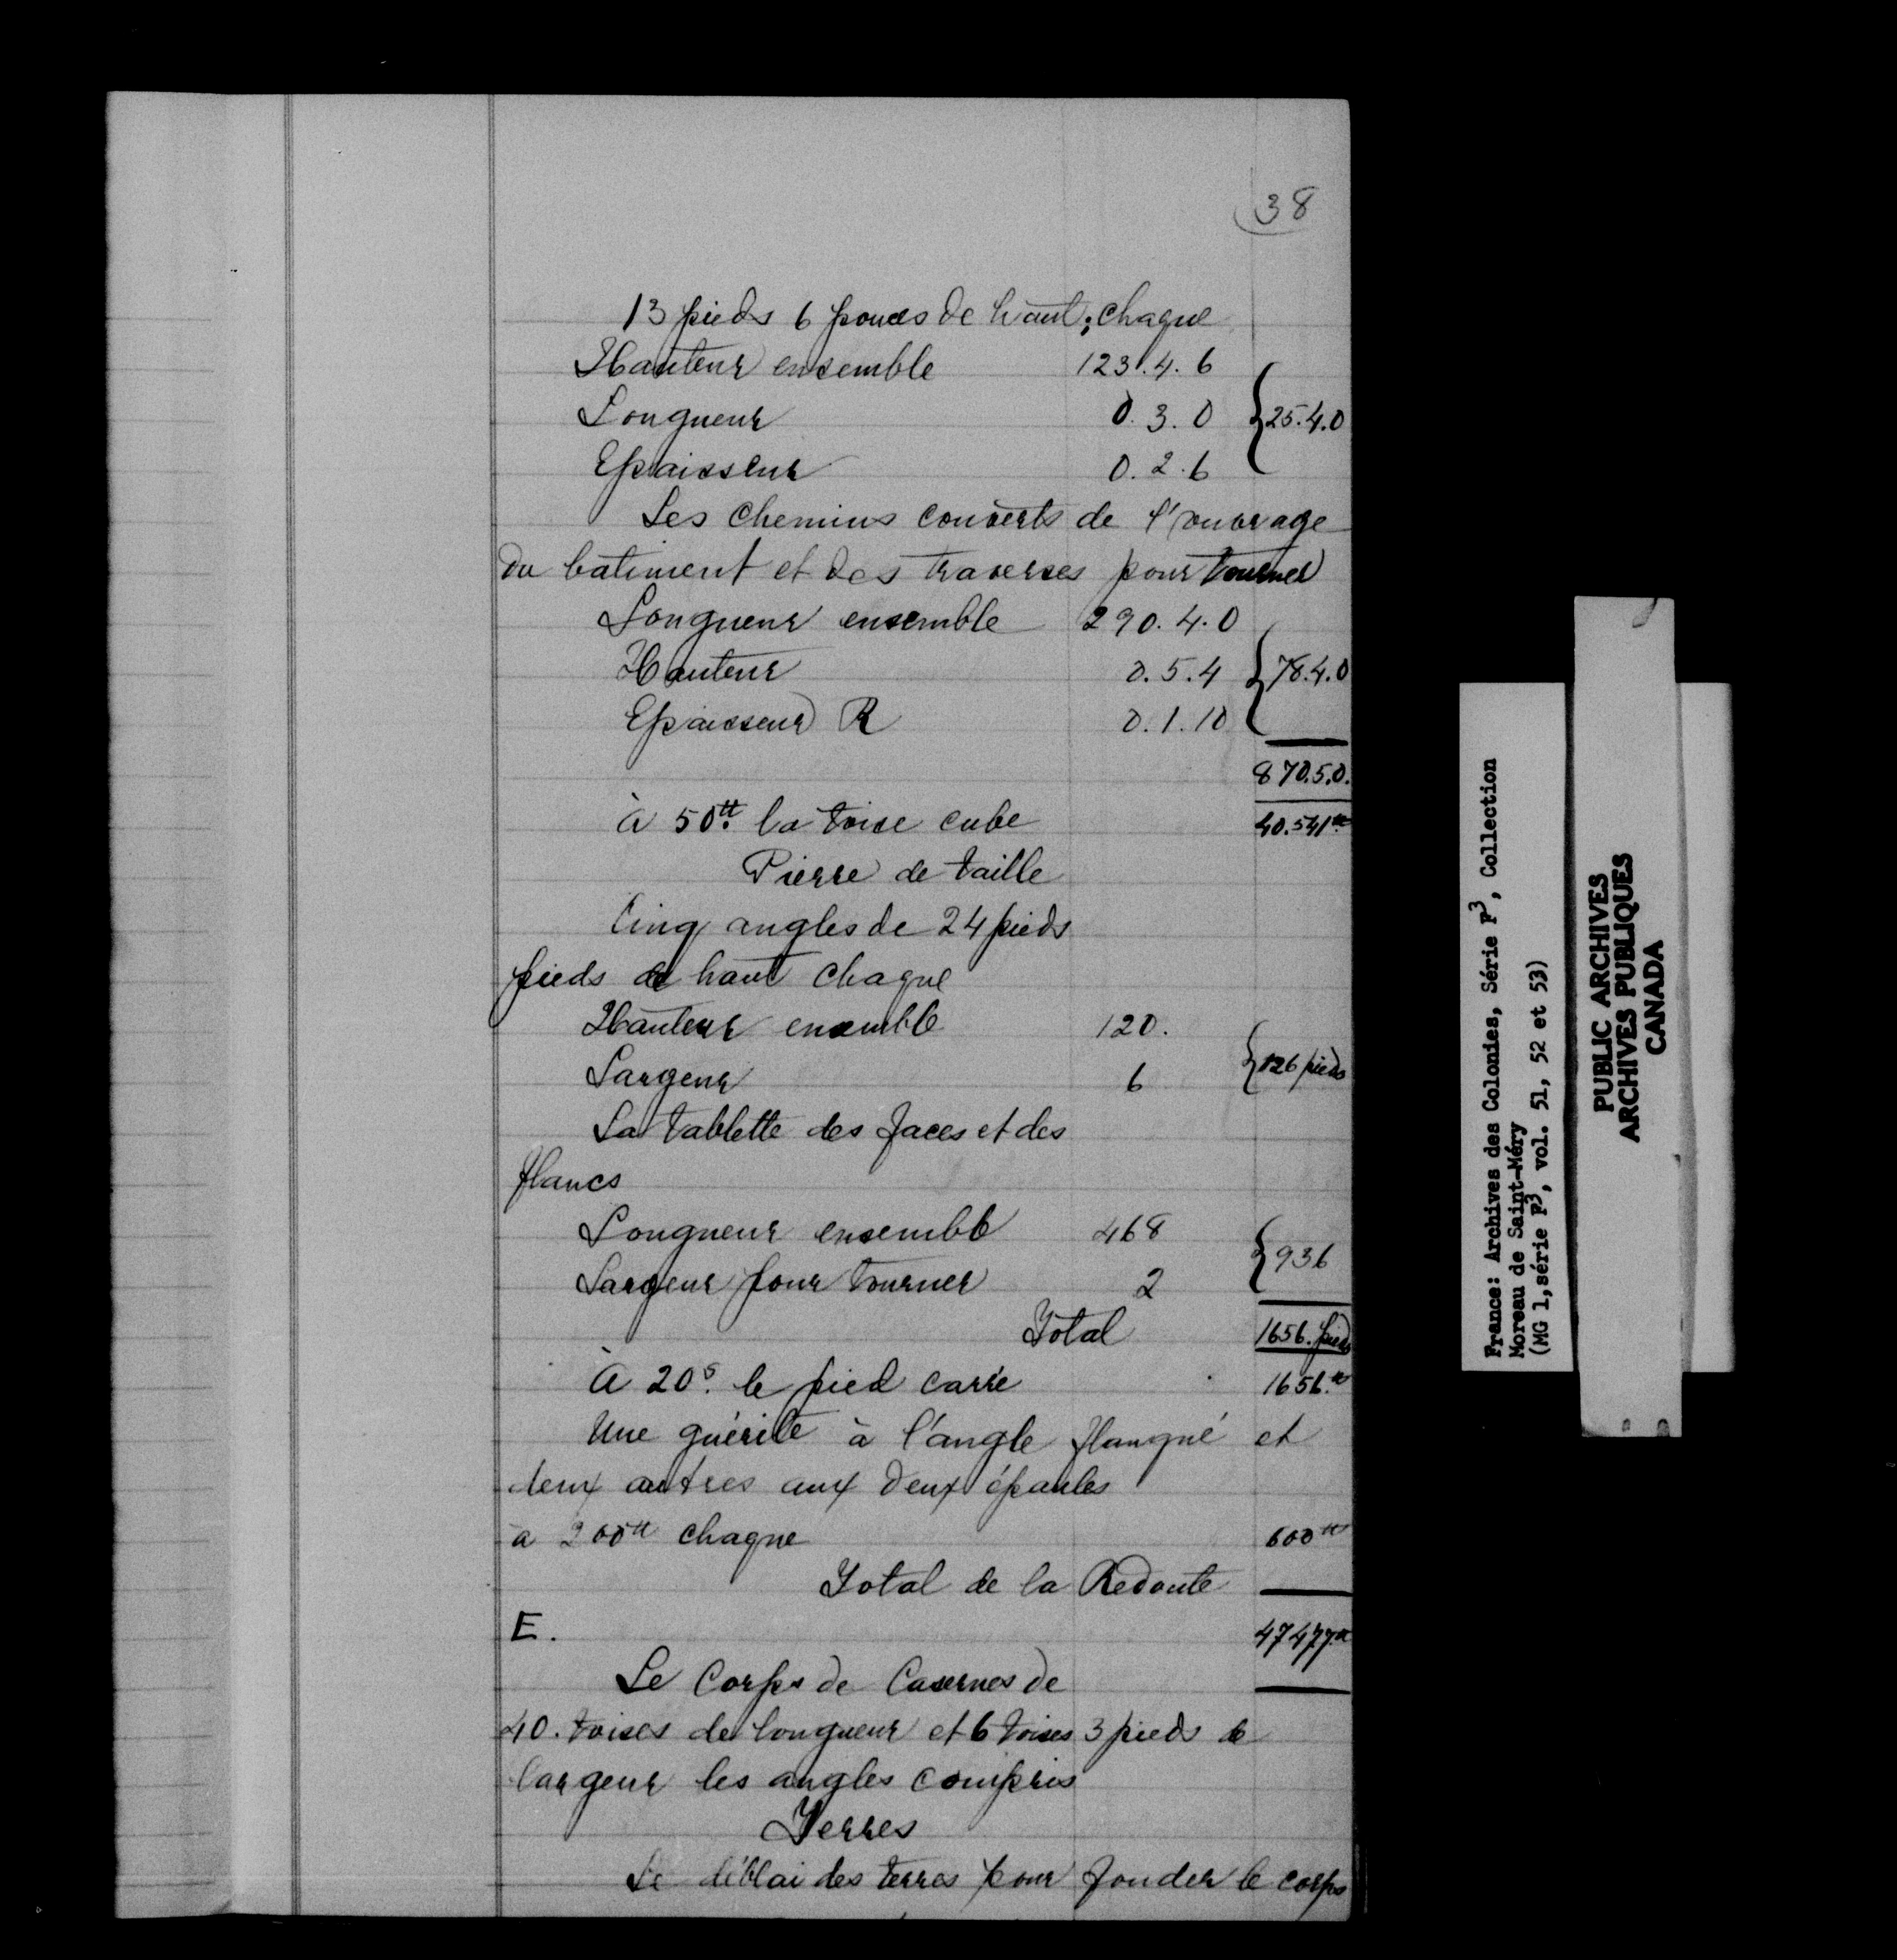 38
13 pieds 6 pouces de haut; chaque
Hauteur ensemble 123.4.6
Longueur 0.3.0 {25.4.0
Epaisseur 0.2.6
Les chemins couverts de l'ouvrage
du bâtiment et des traverses pour tourner
Longueur ensemble 290.4.0
Hauteur 0.5.4 {78.4.0
Epaisseur R 0.1.10
870.5.0.
à 50tt. la toise cube 40.541tt
Pierre de taille
Cinq angles de 24 pieds
pieds de haut chaque
Hauteur ensemble 120.
Largeur 6 {126 pieds
La tablette des faces et des
flancs
Longueur ensemble 468
Largeur pour tourner 2 {936
Total 1656. pieds
à 20s. le pied carré 1656.tt
Une guérite à l'angle flanqué et
deux autres aux deux épaules
a 200tt chaque 600tt
Total de la Redoute
E. 47477tt
Le Corps de Casernes de
40. toises de longueur et 6 toises 3 pieds de
largeur les angles compris
Terres
Le déblai des terres pour fonder le corps
France: Archives des Colonies, Série F3, Collection
Moreau de Saint-Méry
(MG 1,série F3, vol. 51, 52 et 53)
PUBLIC ARCHIVES
ARCHIVES PUBLIQUES
CANADA